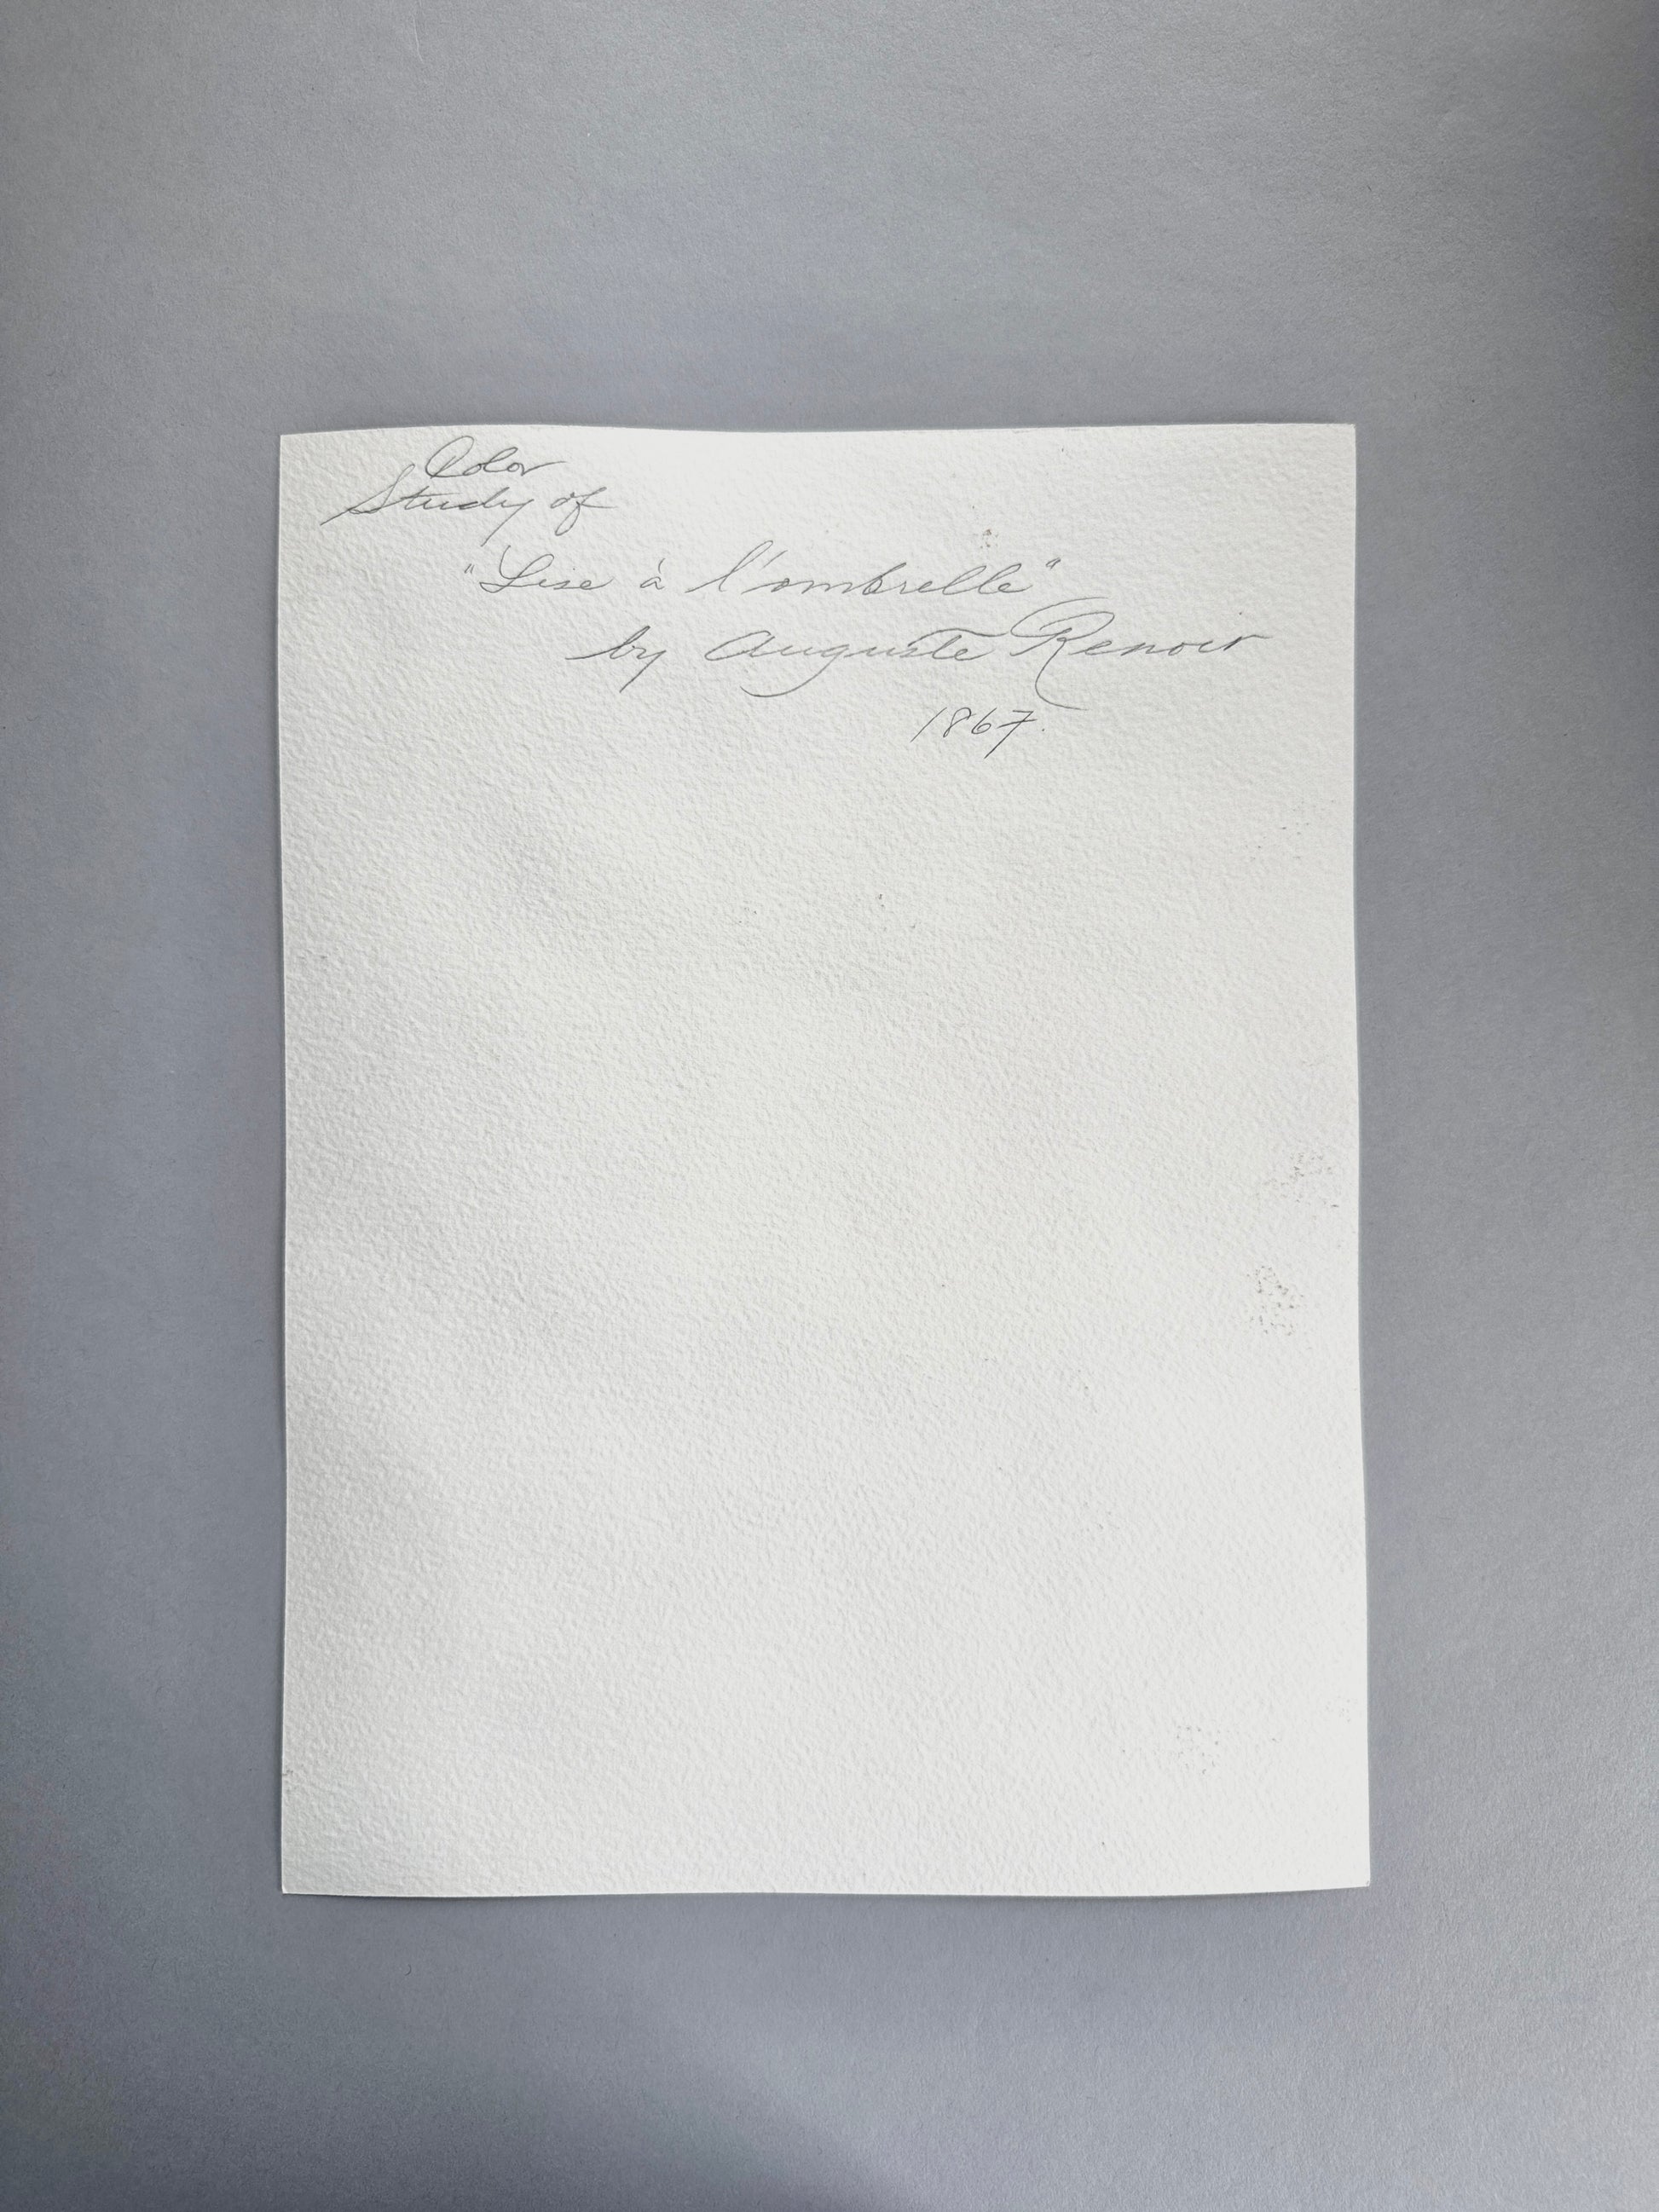 Color
Study of
"Lise à l'ombrelle"
by Auguste Renoir
1867.